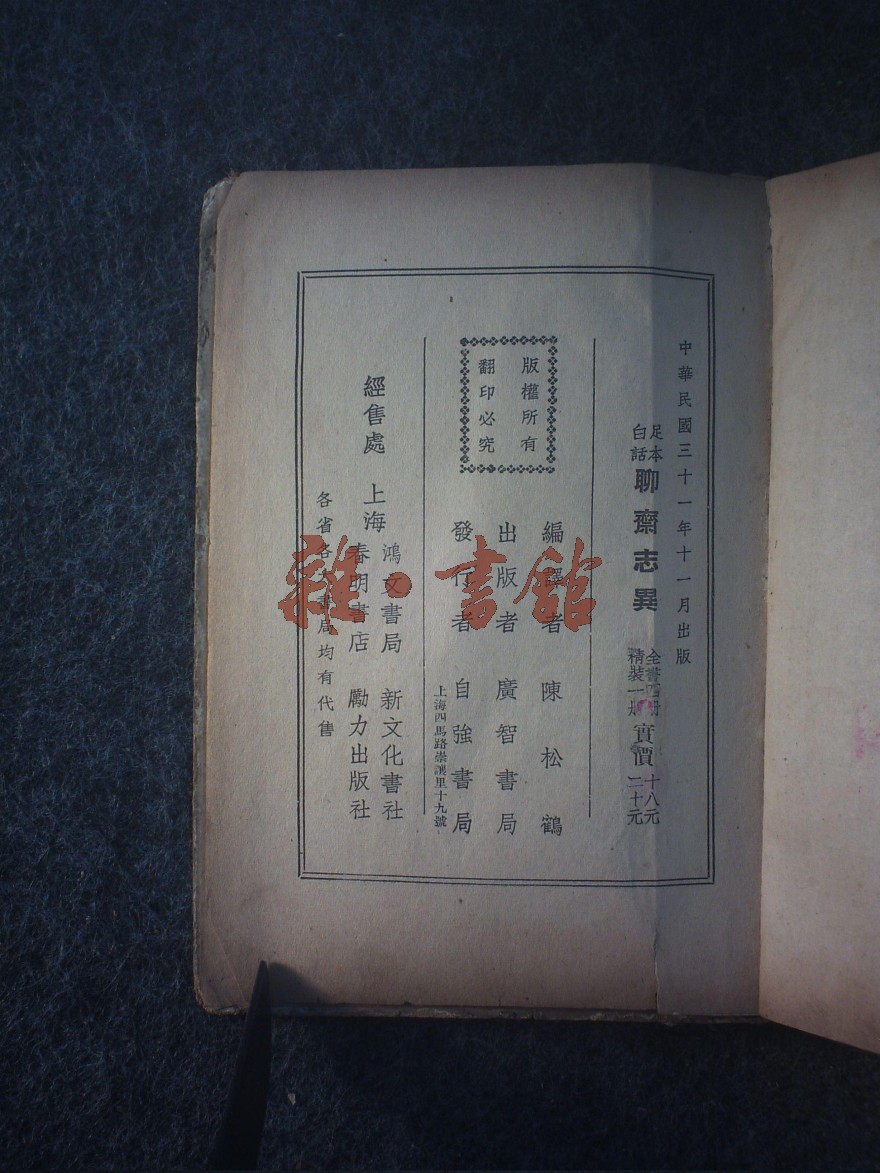 中華民國三十一年十一月出版
足本
白話
聊齋志異
全書四冊
精裝一册
實價
十八元
二十元
版權所有
翻印必究
編譯者 陳松鶴
出版者 廣智書局
發行者 自強書局
上海四馬路崇讓里十九號
經售處 上海
鴻文書局 新文化書社
春明書店 勵力出版社
各省各書局均有代售
雜·書館